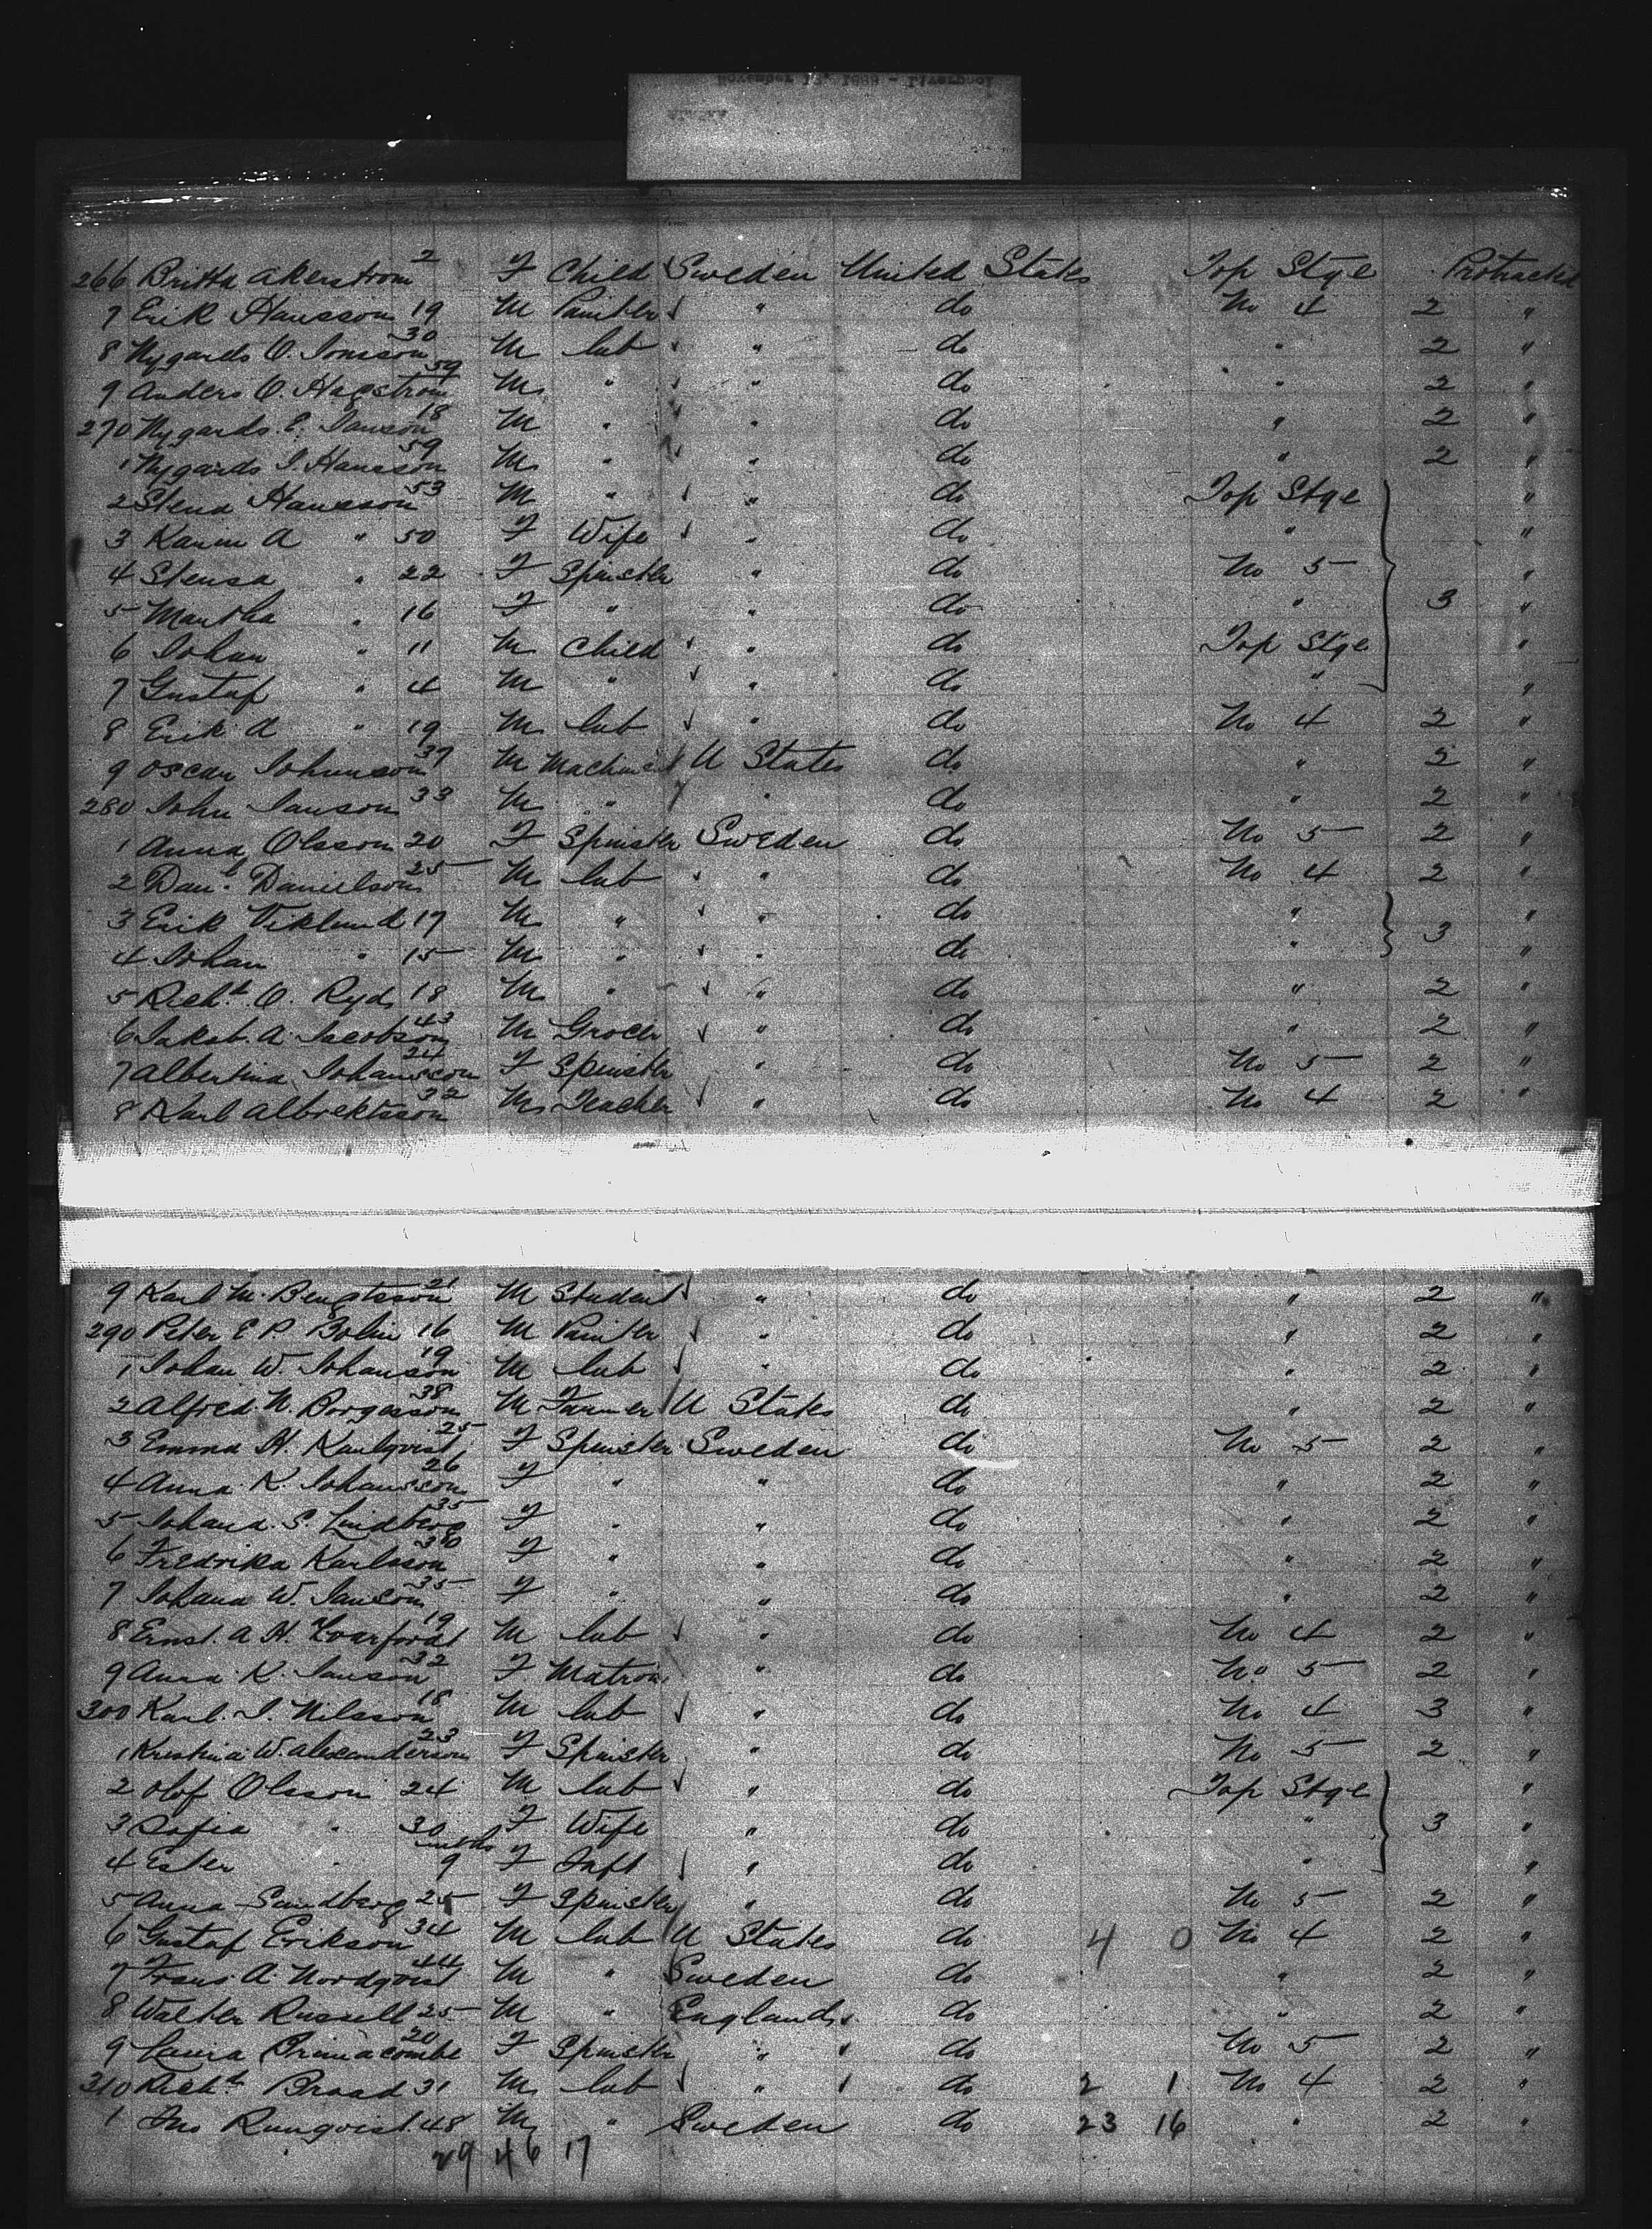 November 12, 1889 - Liverpool
266 Britta Akerstrom 2 F Child Sweden United States Top Stge Protracted
7 Erik Hansson 19 M Painter " do No 4 2 "
8 Nygards O. Jonsson 30 M Lab " do " 2 "
9 Anders O. Hagstrom 59 M " " do " 2 "
270 Nygards E. Janson 18 M " " do " 2 "
1 Nygards J. Hansson 59 M " " do " 2 "
2 Stena Hansson 53 M " " do Top Stge "
3 Karin A " 50 F Wife " do " "
4 Stensa " 22 F Spinster " do No 5 "
5 Martha " 16 F " " do " 3 "
6 Johan " 11 M Child " do Top Stge "
7 Gustaf " 4 M " " do " "
8 Erik A " 19 M Lab " do No 4 2 "
9 Oscar Johnson 37 M Machinist U States do " 2 "
280 John Janson 33 M " " do " 2 "
1 Anna Olsson 20 F Spinster Sweden do No 5 2 "
2 Danl Danielson 25 M Lab " do No 4 2 "
3 Erik Viklund 17 M " " do " 3 "
4 Johan " 15 M " " do " "
5 Richd O. Ryd 18 M " " do " 2 "
6 Jakob A. Jacobson 43 M Grocer " do " 2 "
7 Albertina Johansson 24 F Spinster " do No 5 2 "
8 Karl Albrektsson 32 M Teacher " do No 4 2 "
9 Karl M. Bengtsson 21 M Student " do " 2 "
290 Peter E P Bolin 16 M Painter " do " 2 "
1 Johan W. Johanson 19 M Lab " do " 2 "
2 Alfred N. Borgesson 38 M Farmer U States do " 2 "
3 Emma H. Karlqvist 25 F Spinster Sweden do No 5 2 "
4 Anna K. Johansson 26 F " " do " 2 "
5 Johana S. Lindberg 35 F " " do " 2 "
6 Fredrika Karlsson 30 F " " do " 2 "
7 Johana W. Janson 35 F " " do " 2 "
8 Ernst A H. 19 M Lab " do No 4 2 "
9 Anna K. Janson 32 F Matron " do No 5 2 "
300 Karl J. Nilsson 18 M Lab " do No 4 3 "
1 Kristina W. Alexanderson 23 F Spinster " do No 5 2 "
2 Olof Olsson 24 M Lab " do Top Stge "
3 Sofia " 30 F Wife " do " 3 "
4 Ester " 9 mths F Inft " do " "
5 Anna Sundberg 25 F Spinster " do No 5 2 "
6 Gustaf Erikson 34 M Lab U States do 4 0 No 4 2 "
7 Frans A. Nordqvist 44 M " Sweden do " 2 "
8 Walter Russell 25 M " England do " 2 "
9 Laura Brimacombe 20 F Spinster " do No 5 2 "
310 Richd Broad 31 M Lab " do 2 1 No 4 2 "
1 Jno Runqvist 48 M " Sweden do 23 16 " 2 "
29 46 17